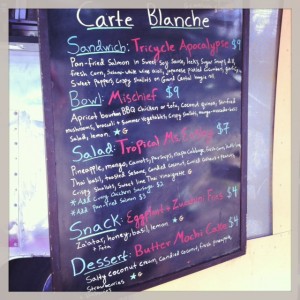 Carte Blanche
Sandwich: Tricycle Apocalypse $9
Pan-fried Salmon in Sweet Soy Sauce, leeks, Sugar Snaps,
fresh Corn, white wine Japanese Pickled Cucumbers, garlic,
Sweet Peppers, Crispy Shallots on Grand Central
Bowl: Mischief $9
Apricot bourbon BBQ Chicken or tofu, Coconut quinoa,
mushrooms, broccoli + Summer Vegetables, Crispy Shallots,
Salad, lemon. *G
Salad: Tropical Ms $7
Pineapple, mango, Carrots, Parsnips, Napa Cabbage,
Thai basil, toasted Candied Coconut,
Crispy Shallots, Sweet lime Thai Vinaigrette G
* Add Curry Chicken Sausage $2
* Add Pan-fried Salmon $3
Snack: Eggplant + Zucchini Fries $4
Za'atar, honey, basil, lemon *G
+ Feta
Dessert: Butter Mochi Cake $4
Salty coconut cream, candied coconut, fresh pineapple,
Strawberries *G